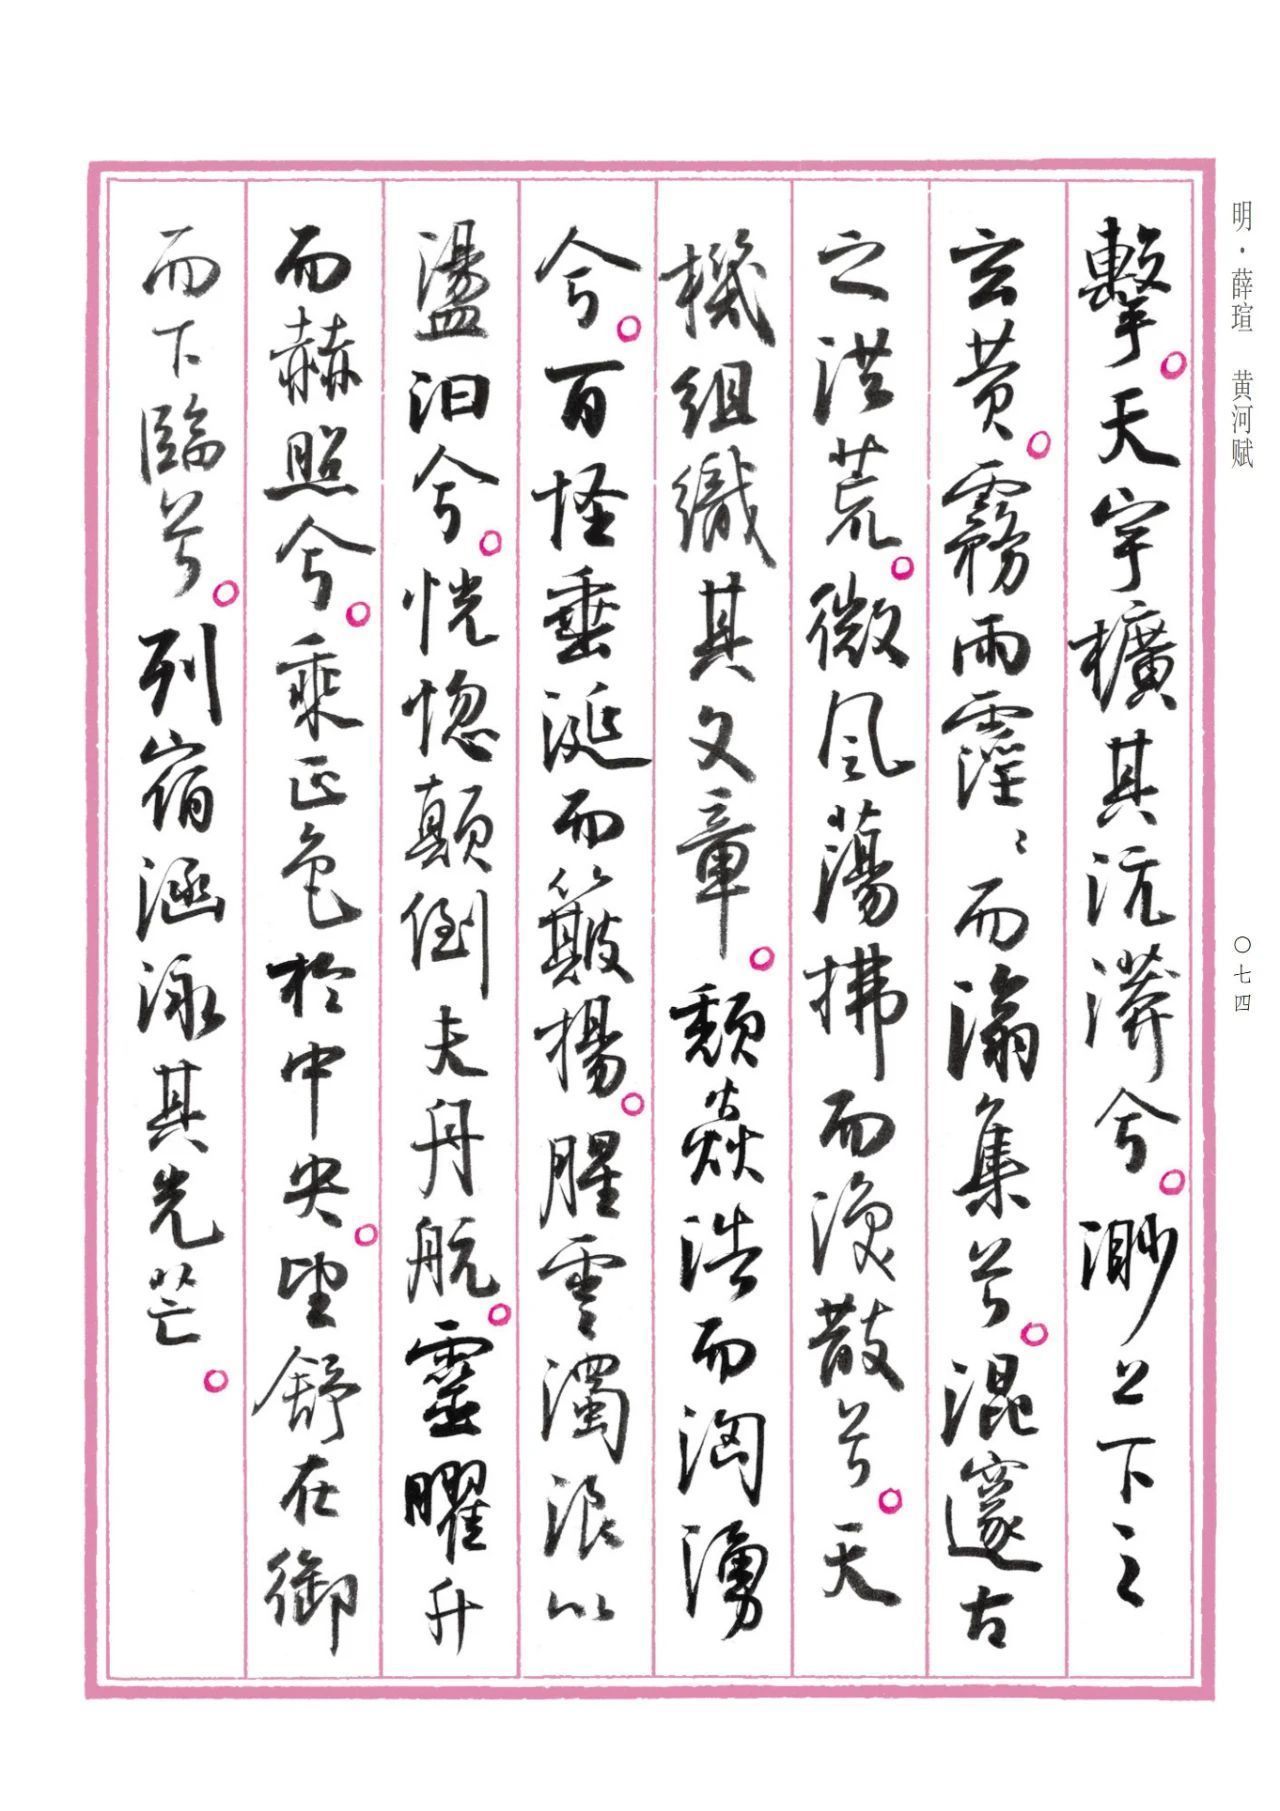 明·薛瑄 黄河赋
擊。天宇擴其沆漭兮。渺上下之
玄黄。霧雨霪〻而滃集兮。混邃古
之洪荒。微風蕩拂而渙散兮。天
機組織其文章。頹焱浩而洶湧
兮。百怪垂涎而簸揚。腥雲濁浪以
盪汩兮。恍惚顛倒夫舟航。靈曜升
而赫照兮。乘正色於中央。望舒在御
而下臨兮。列宿涵泳其光芒。
〇七四